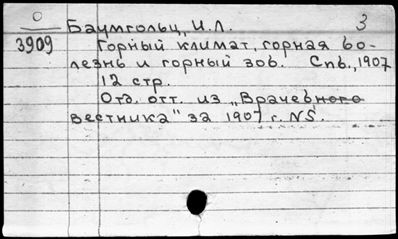 Баумгольц, И.Л. 3
3909
Горный климат, горная бо-
лезнь и горный зоб. Спб., 1907
12 стр.
Отд. отт. из „Врачебного
вестника" за 1907 г. N5.